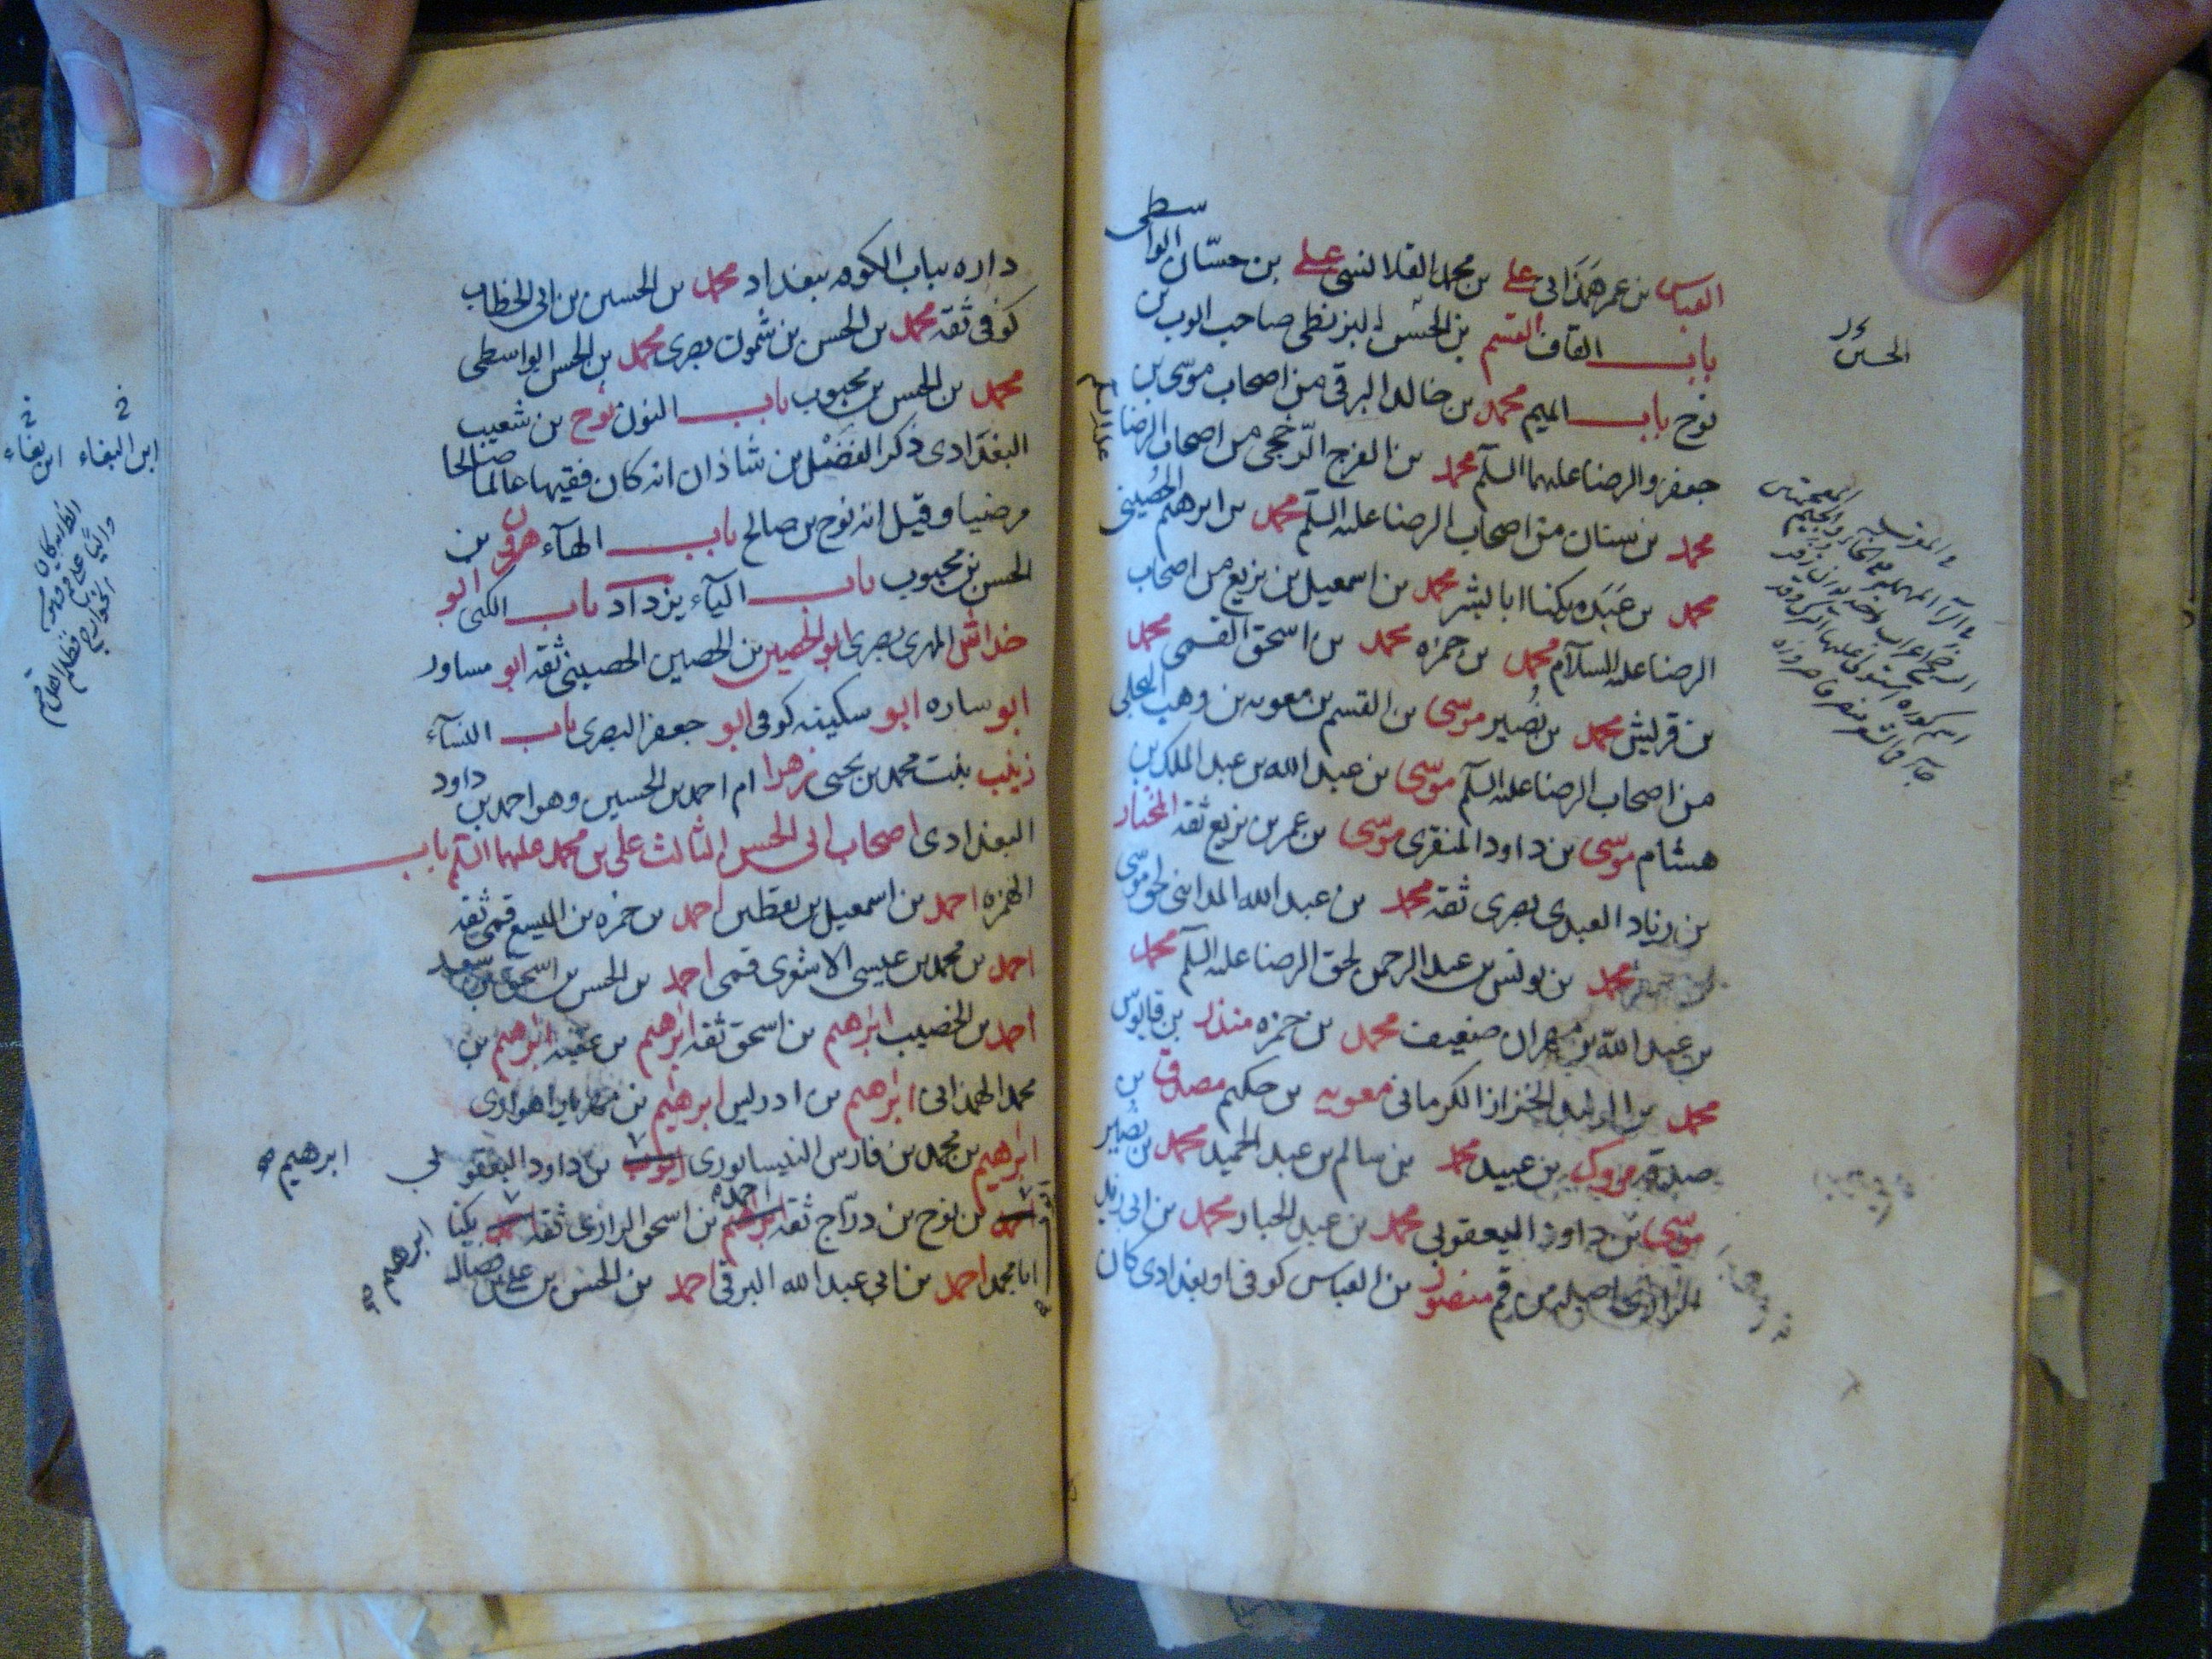 العباس بن عمر همداني علي بن محمد القلانسي علي بن حسّان الواسطي
باب القاف القسم بن الحسن البزنطي صاحب ايوب بن
نوح باب الميم محمد بن خالد البرقي من اصحاب موسى بن
جعفر والرضا عليهما السلم محمد بن الفرج الرّخجي من اصحاب الرضا عليه السلم
محمد بن سنان من اصحاب الرضا عليه السلم محمد بن ابرهيم الحُصَيني
محمد بن عَبَده يكنا ابا بشر محمد بن اسمعيل بن بزيع من اصحاب
الرضا عليه السلام محمد بن حمزه محمد بن اسحق القمي محمد
بن قريش محمد بن نُصير موسى بن القسم بن معويه بن وهب البجلي
من اصحاب الرضا عليه السلم موسى بن عبد الله بن عبد الملك بن
هشام موسى بن داود المنقري موسى بن عمر بن بزيع ثقه المختار
بن زياد العبدي بصرى ثقه محمد بن عبد الله المدائني لحق موسى
محمد بن يونس بن عبد الرحمن لحق الرضا عليه السلم محمد
بن عبد الله بن مهران ضعيف محمد بن حمزه منذر بن قابوس
محمد بن الوليد الخزاز الكرماني معويه بن حكيم مصدق بن
صدقه مروك بن عبيد محمد بن سالم بن عبد الحميد محمد بن نُصَير
موسى بن داود اليعقوبي محمد بن عبد الجبار محمد بن ابي زيد
الرازي اصله من قم منصور بن العباس كوفي او بغدادي كان
الحسين
داره بباب الكوفه ببغداد محمد بن الحسين بن ابي الخطاب
كوفي ثقه محمد بن الحسن بن شمون بصرى محمد بن الحسن الواسطي
محمد بن الحسن بن محبوب باب النون نوح بن شعيب
البغدادي ذكر الفضل بن شاذان انه كان فقيها عالما صالحا
مرضيا وقيل انه نوح بن صالح باب الهآء هرون بن
الحسن بن محبوب باب اليآء يزداد باب الكنى ابو
خداش المهرى بصرى ابو الحصين بن الحصين الحصيني ثقه ابو مساور
ابو ساره ابو سكينه كوفي ابو جعفر البصرى باب النسآء
زينب بنت محمد بن يحيى زهرا ام احمد بن الحسين وهو احمد بن داود
البغدادي اصحاب ابي الحسن الثالث علي بن محمد عليهما السلم باب
الهمزه احمد بن اسمعيل بن يقطين احمد بن حمزه بن اليسع قمي ثقه
احمد بن محمد بن عيسى الاشعرى قمى احمد بن الحسن بن اسحق بن سعد
احمد بن الخصيب ابرهيم بن اسحق ثقه ابرهيم بن عقبه ابرهيم بن
محمد الهمداني ابرهيم بن ادريس ابرهيم بن مهزيار اهوازى
ابرهيم بن محمد بن فارس النيسابورى ايوب بن داود اليعقوبي
بن نوح بن درّاج ثقه احمد بن اسحق الرازى ثقه يكنا
ابا محمد احمد بن ابي عبد الله البرقي احمد بن الحسن بن علي بن فضال
ابرهيم
ابرهيم
ابن البغاء ابن بغاء